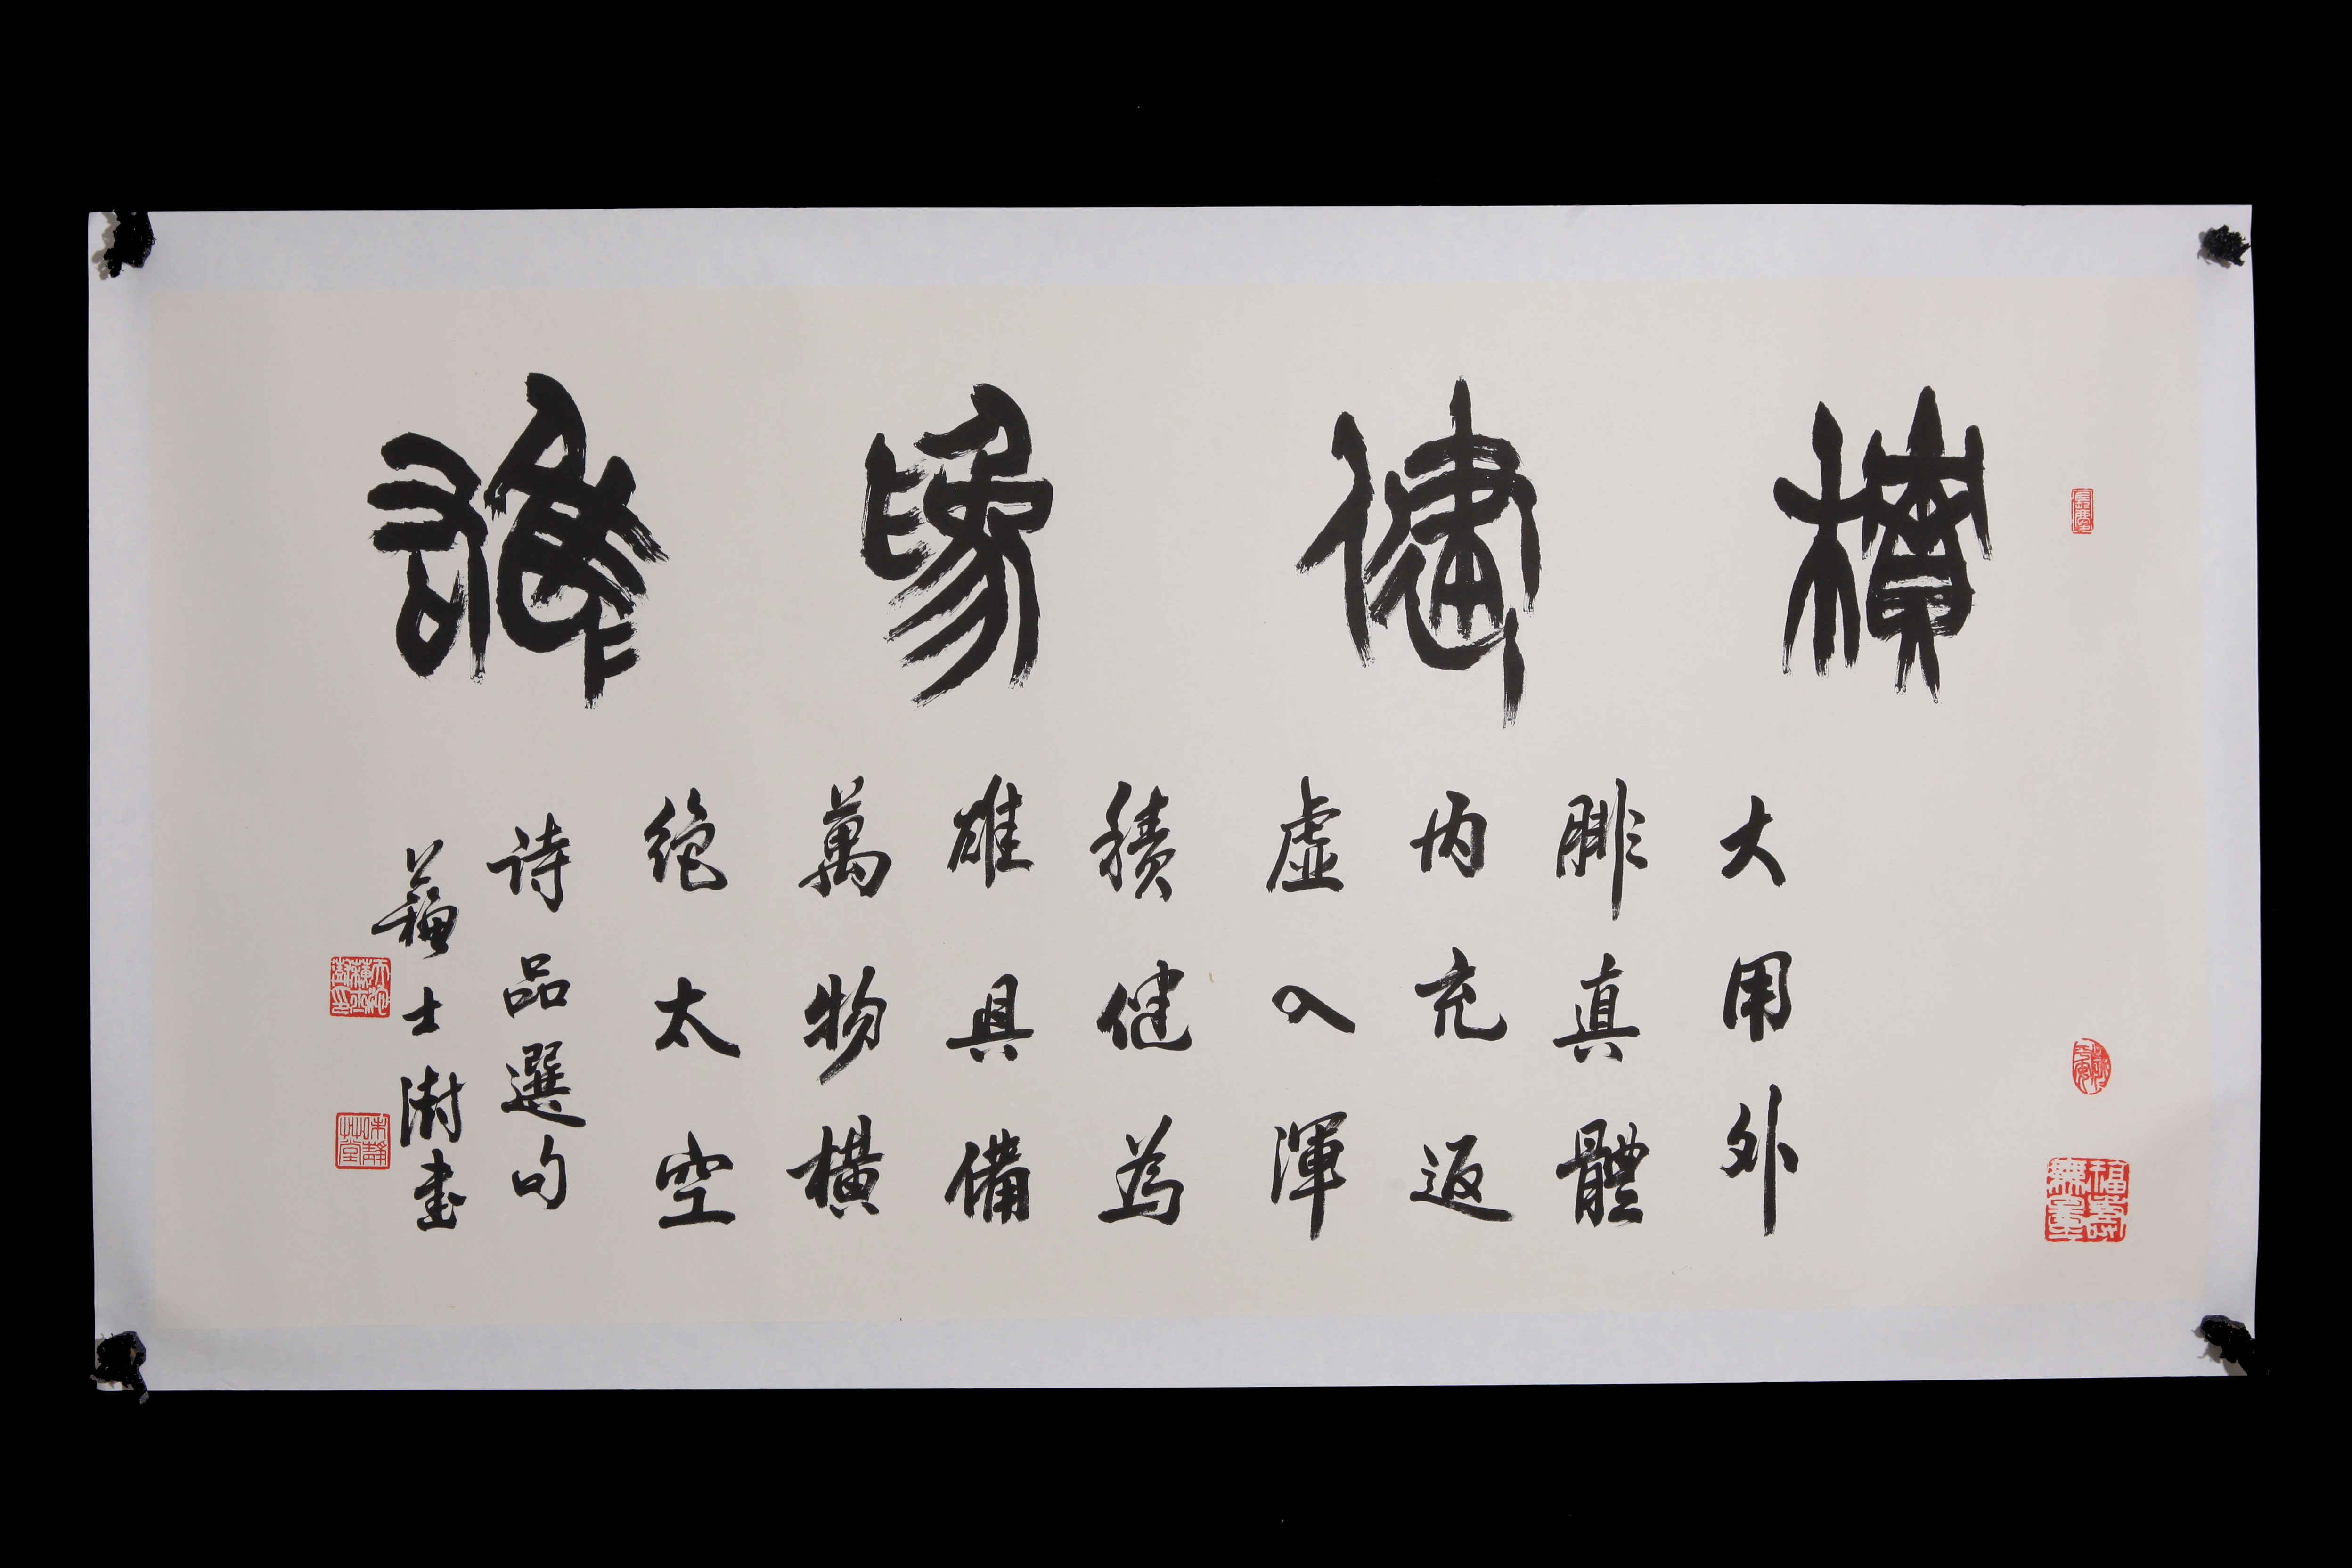 積健為雄
大用外
腓真體
内充返
虛入渾
積健為
雄具備
萬物橫
絕太空
诗品選句
蘇士澍書
福壽無量